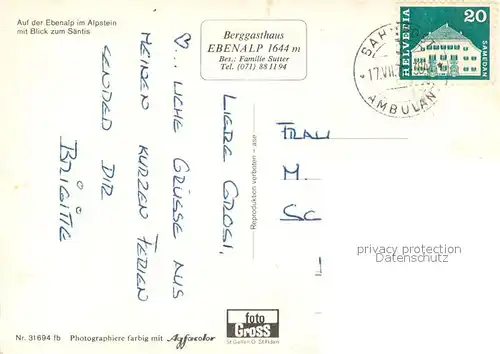 Auf der Ebenalp im Alpstein
mit Blick zum Säntis
Berggasthaus
EBENALP 1644 m
Bes.: Familie Sutter
Tel. (071) 88 11 94
HELVETIA
20
SAMEDAN
17.VII.
AMBULANT
LIEBE GROSI,
♡... LICHE GRÜSSE AUS
MEINEN KURZEN FERIEN
SENDED DIR
BRIGITTE
Reproduktion verboten - ase
FRAU
M.
SC
privacy protection
Datenschutz
foto
Gross
St.Gallen O St.Fiden
Nr. 31694 fb Photographiere farbig mit Agfacolor